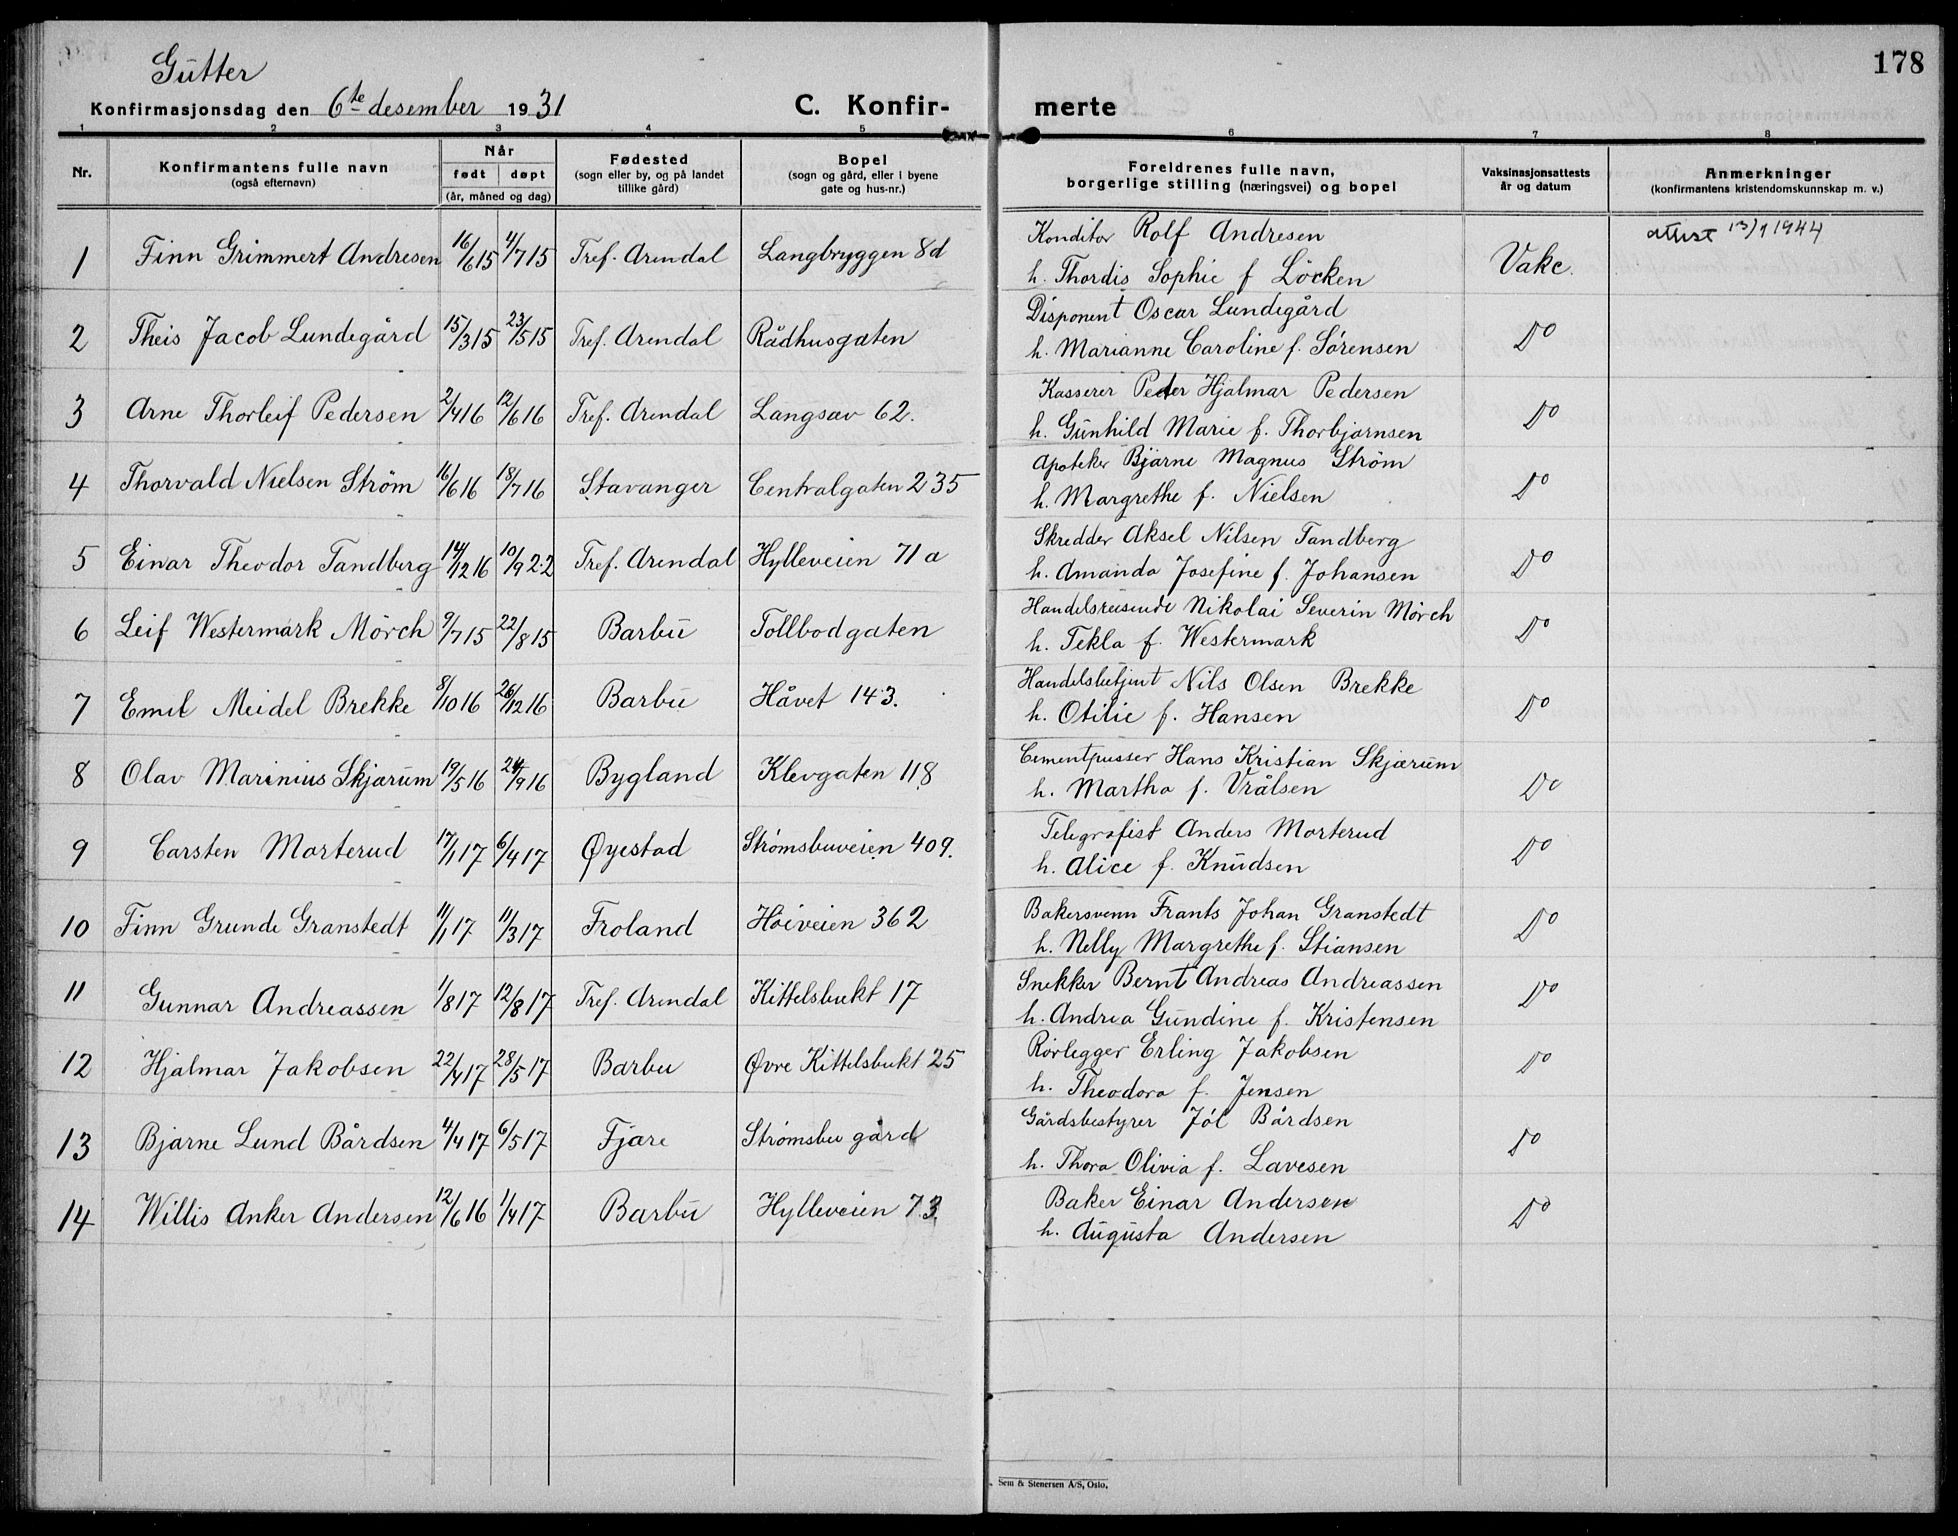 178
Gutter
Konfirmasjonsdag den 6te desember 1931 C. Konfirmerte
1 2 3 4 5 6 7 8
Nr. Konfirmantens fulle navn (også efternavn) Når født døpt (år, måned og dag) Fødested (sogn eller by, og på landet tillike gård) Bopel (sogn og gård, eller i byene gate og hus-nr.) Foreldrenes fulle navn, borgerlige stilling (næringsvei) og bopel Vaksinasjonsattests år og datum Anmerkninger (konfirmantens kristendomskunnskap m. v.)
1 Finn Grimmert Andresen 16/6 15 4/7 15 Tref. Arendal Langbryggen 8d Konditor Rolf Andresen Vakc. attest 13/1 1944
h. Thordis Sophie f Löcken
2 Theis Jacob Lundegård 15/3 15 23/5 15 Tref. Arendal Rådhusgaten Disponent Oscar Lundegård Do
h. Marianne Caroline f. Sørensen
3 Arne Thorleif Pedersen 2/4 16 12/6 16 Tref. Arendal Langsæv 62. Kasserer Peder Hjalmar Pedersen Do
h. Gunhild Marie f. Thorbjørnsen
4 Thorvald Nielsen Ström 16/6 16 18/7 16 Stavanger Centralgaten 235 Apoteker Bjarne Magnus Ström Do
h. Margrethe f. Nielsen
5 Einar Theodor Tandberg 14/12 16 10/9 22 Tref. Arendal Hylleveien 71a Skredder Aksel Nilsen Tandberg Do
h. Amanda Josefine f. Johansen
6 Leif Westermark Mörch 9/7 15 22/8 15 Barbu Tollbodgaten Handelsreisende Nikolai Severin Mörch Do
h. Tekla f. Westermark
7 Emil Meidel Brekke 8/10 16 26/12 16 Barbu Håvet 143. Handelsbetjent Nils Olsen Brekke Do
h. Otilie f. Hansen
8 Olav Marinius Skjærum 19/5 16 24/9 16 Bygland Klevgaten 118 Cementpusser Hans Kristian Skjærum Do
h. Martha f. Vrålsen
9 Carsten Morterud 17/1 17 6/4 17 Øyestad Strømsbuveien 409. Telegrafist Anders Morterud Do
h. Alice f. Knudsen
10 Finn Grunde Granstedt 11/1 17 11/3 17 Froland Höiveien 362 Bakersvenn Frants Johan Granstedt Do
h. Nelly Margrethe f. Stiansen
11 Gunnar Andreassen 1/8 17 12/8 17 Tref. Arendal Kittelsbukt 17 Snekker Bernt Andreas Andreassen Do
h. Andrea Gundine f. Kristensen
12 Hjalmar Jakobsen 22/4 17 28/5 17 Barbu Øvre Kittelsbukt 25 Rørlegger Erling Jakobsen Do
h. Theodora f. Jensen
13 Bjarne Lund Bårdsen 4/4 17 6/5 17 Fjære Strømsbu gård Gårdsbestyrer Jól Bårdsen Do
h. Thora Olivia f. Lavesen
14 Willis Anker Andersen 12/6 16 1/4 17 Barbu Hylleveien 73. Baker Einar Andersen Do
h. Augusta Andersen
Sem & Stenersen A/S, Oslo,